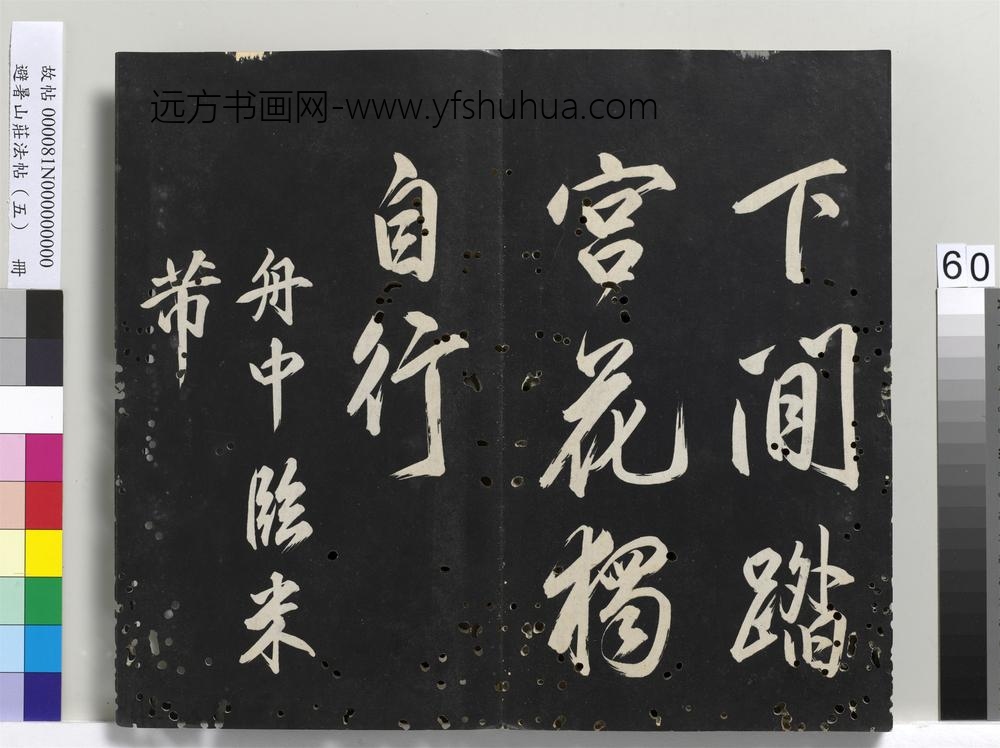 下閒踏
宫花獨
自行
舟中臨米
芾
远方书画网-www.yfshuhua.com
故帖000081N000000000
避暑山莊法帖（五） 冊
60